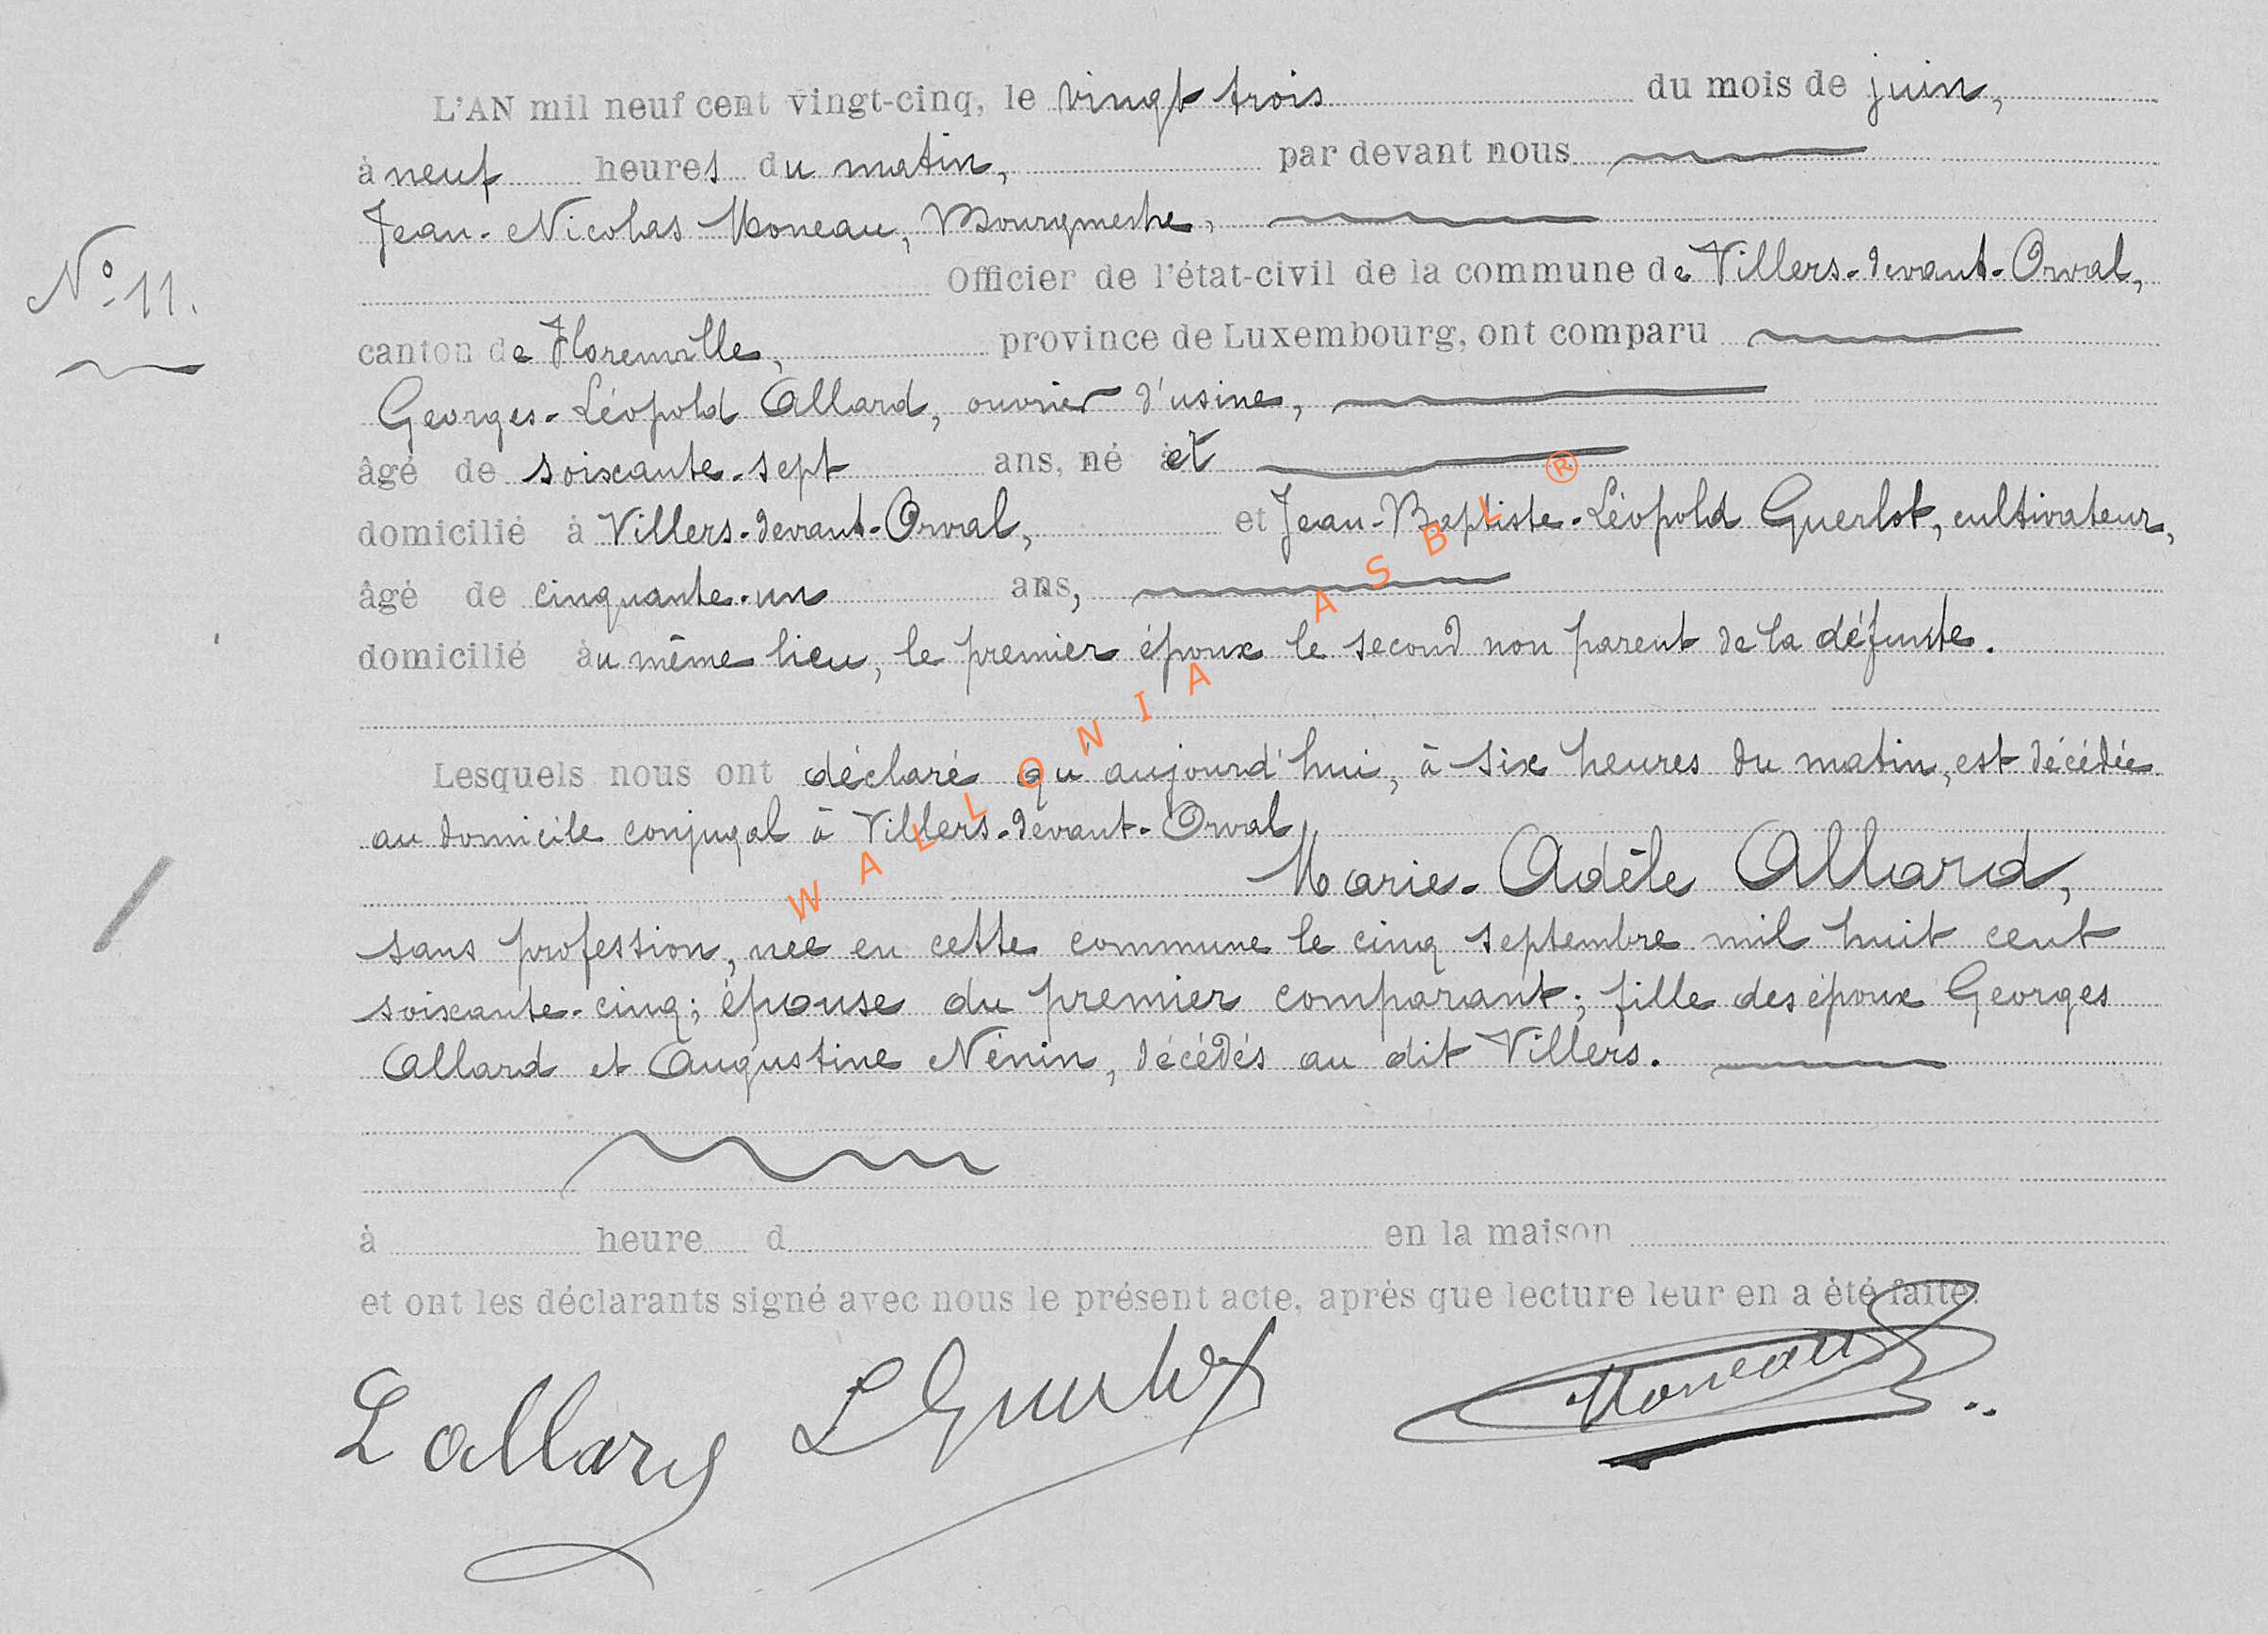 L'AN mil neuf cent vingt-cinq, le vingt trois du mois de juin,
à neuf heures du matin, par devant nous
Jean-Nicolas Moneau, Bourgmestre,
N° 11.
Officier de l'état-civil de la commune de Villers-devant-Orval,
canton de Florenville, province de Luxembourg, ont comparu
Georges-Léopold Allard, ouvrier d'usine,
âgé de soixante-sept ans, né et
domicilié à Villers-devant-Orval, et Jean-Baptiste-Léopold Guerlot, cultivateur,
âgé de cinquante-un ans,
domicilié au même lieu, le premier époux le second non parent de la défunte.
Lesquels nous ont déclaré qu'aujourd'hui, à six heures du matin, est décédée
au domicile conjugal à Villers-devant-Orval
Marie-Adèle Allard,
sans profession, née en cette commune le cinq septembre mil huit cent
soixante-cinq; épouse du premier comparant; fille des époux Georges
Allard et Augustine Nénin, décédés au dit Villers.
à heure d en la maison
et ont les déclarants signé avec nous le présent acte, après que lecture leur en a été faite.
L Allard L Guerlot Moneau
WALLONIA ASBL ®